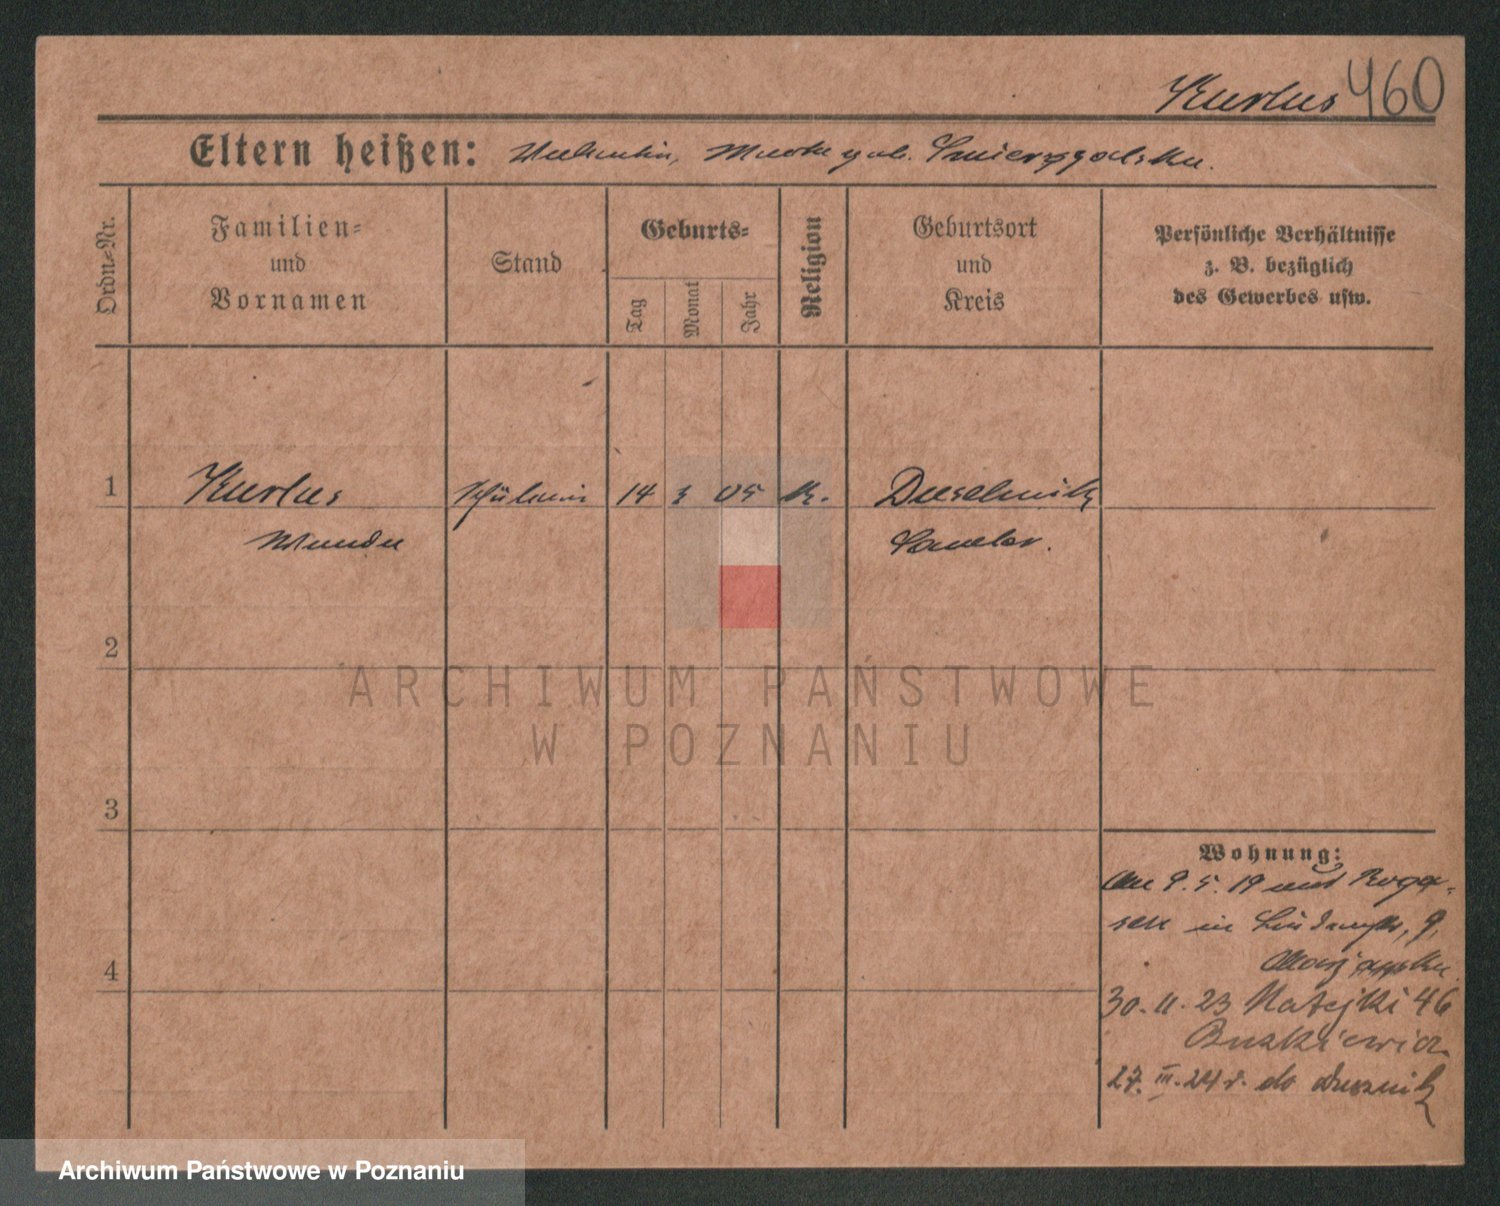 Kurlus 460
Eltern heißen: Valentin, Marta geb. Smierzchalska.
Ordn-Nr.
Familien-
und
Vornamen
Stand
Geburts-
Tag
Monat
Jahr
Religion
Geburtsort
und
Kreis
Persönliche Verhältnisse
z. B. bezüglich
des Gewerbes usw.
1 Kurlus Schülerin 14 3 05 k. Duschnik
Wanda Samter.
2
ARCHIWUM PAŃSTWOWE
W POZNANIU
3
Wohnung:
Am 9. 5. 19 aus
in 9,
4
30. 11. 23 Matejki 46
27. III. 24 r. do Dusznik
Archiwum Państwowe w Poznaniu